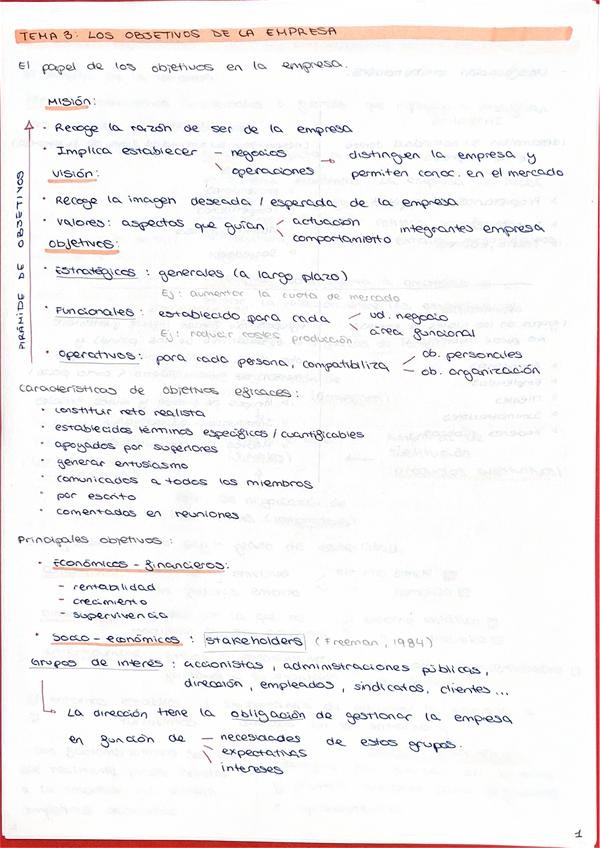 TEMA 3: LOS OBJETIVOS DE LA EMPRESA
El papel de los objetivos en la empresa.
MISIÓN:
· Recoge la razón de ser de la empresa
· Implica establecer – negocios → distinguen la empresa y
\ operaciones permiten conoc. en el mercado
VISIÓN:
· Recoge la imagen deseada / esperada de la empresa
· Valores: aspectos que guían / actuación integrantes empresa
\ comportamiento
Objetivos:
PIRÁMIDE DE OBJETIVOS
· Estratégicos: generales (a largo plazo)
Ej: aumentar la cuota de mercado
· Funcionales: establecido para cada / ud. negocio
\ área funcional
Ej: reducir costes producción
· Operativos: para cada persona, compatibiliza / ob. personales
– ob. organización
Características de objetivos eficaces:
· constituir reto realista
· establecidos términos específicos / cuantificables
· apoyados por superiores
· generar entusiasmo
· comunicados a todos los miembros
· por escrito
· comentados en reuniones
Principales objetivos:
· Económicos - financieros:
- rentabilidad
- crecimiento
- supervivencia
· Socio - económicos: stakeholders (Freeman, 1984)
Grupos de interés: accionistas, administraciones públicas,
dirección, empleados, sindicatos, clientes...
↳ La dirección tiene la obligación de gestionar la empresa
en función de – necesidades de estos grupos.
\ expectativas
intereses
1